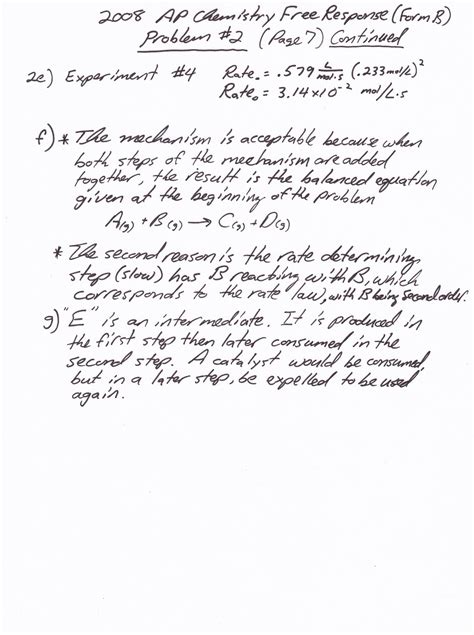 2008 AP Chemistry Free Response (Form B)
Problem #2 (Page 7) Continued
2e) Experiment #4 Rate₀ = .579 L/mol·s (.233 mol/L)²
Rate₀ = 3.14x10⁻² mol/L·s
f) * The mechanism is acceptable because when
both steps of the mechanism are added
together, the result is the balanced equation
given at the beginning of the problem
A(g) + B(g) → C(g) + D(g)
* The second reason is the rate determining
step (slow) has B reacting with B, which
corresponds to the rate law, with B being second order.
g) "E" is an intermediate. It is produced in
the first step then later consumed in the
second step. A catalyst would be consumed,
but in a later step, be expelled to be used
again.